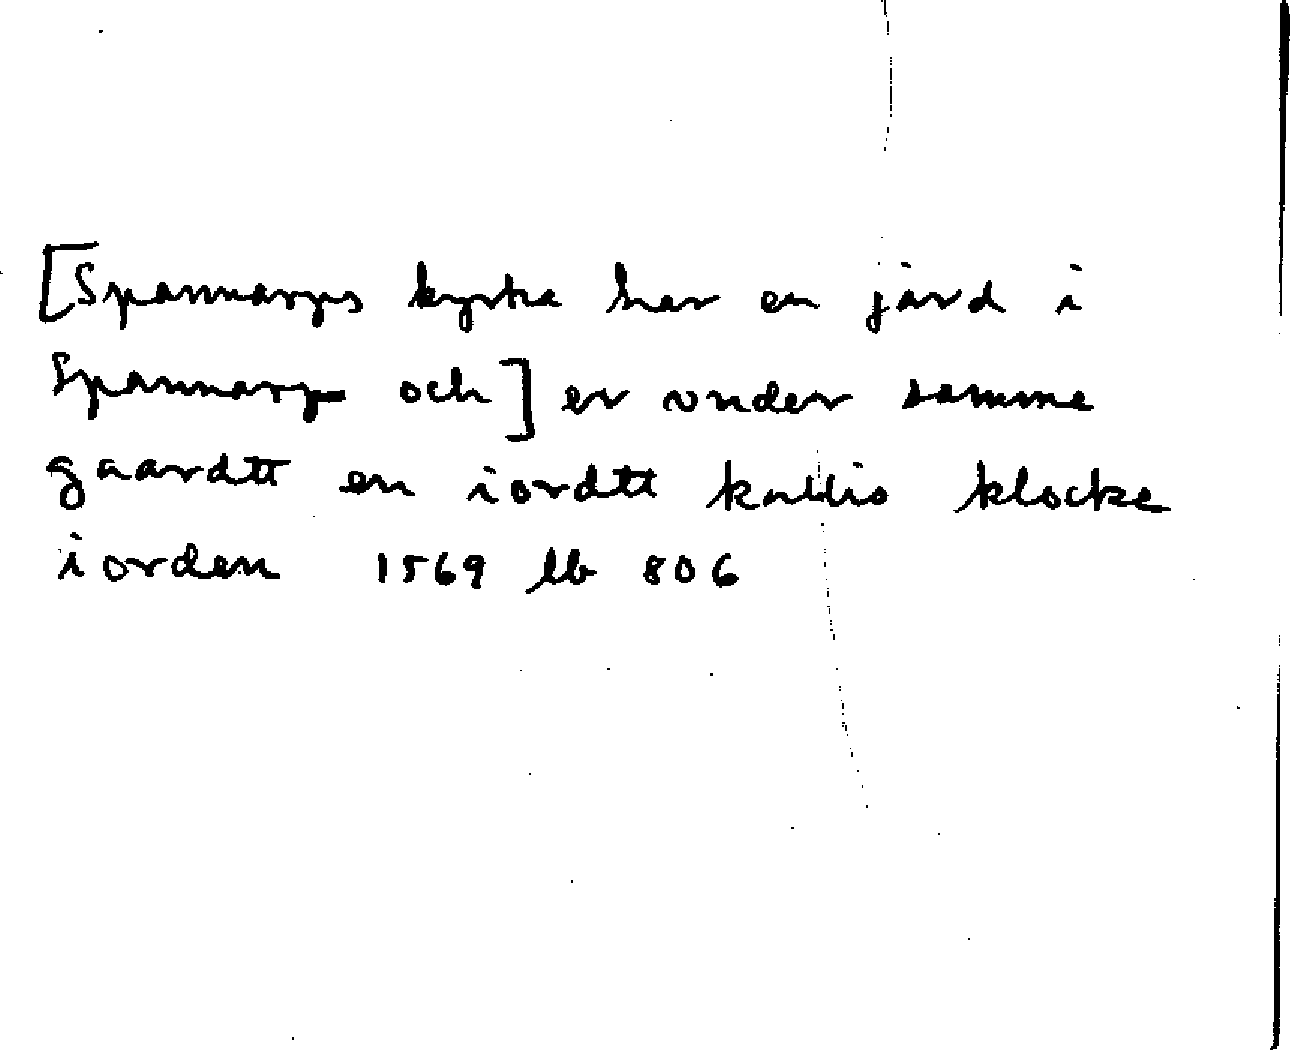 [Spannarps kyrka har en jard i
Spannarp och] er vnder samme
gaardtt en iordtt kaldis klocke
iorden 1569 lb 806